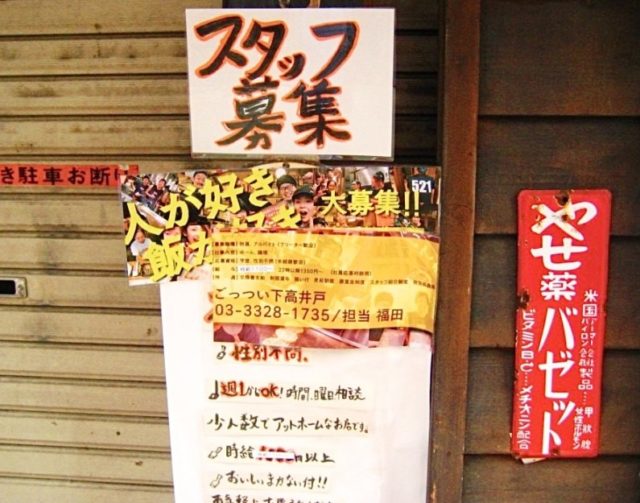 スタッフ
募集
き駐車お断り
人が好き
飯が好き
大募集!!
521
ごっつい下高井戸
03-3328-1735/担当 福田
性別不問。
週1からOK!時間、曜日相談
少人数でアットホームなお店です。
時給
以上
おいしいまかない付!!
やせ薬バゼット
米国
製品
甲状腺
女性ホルモン
ビタミンB・C
メチオニン配合